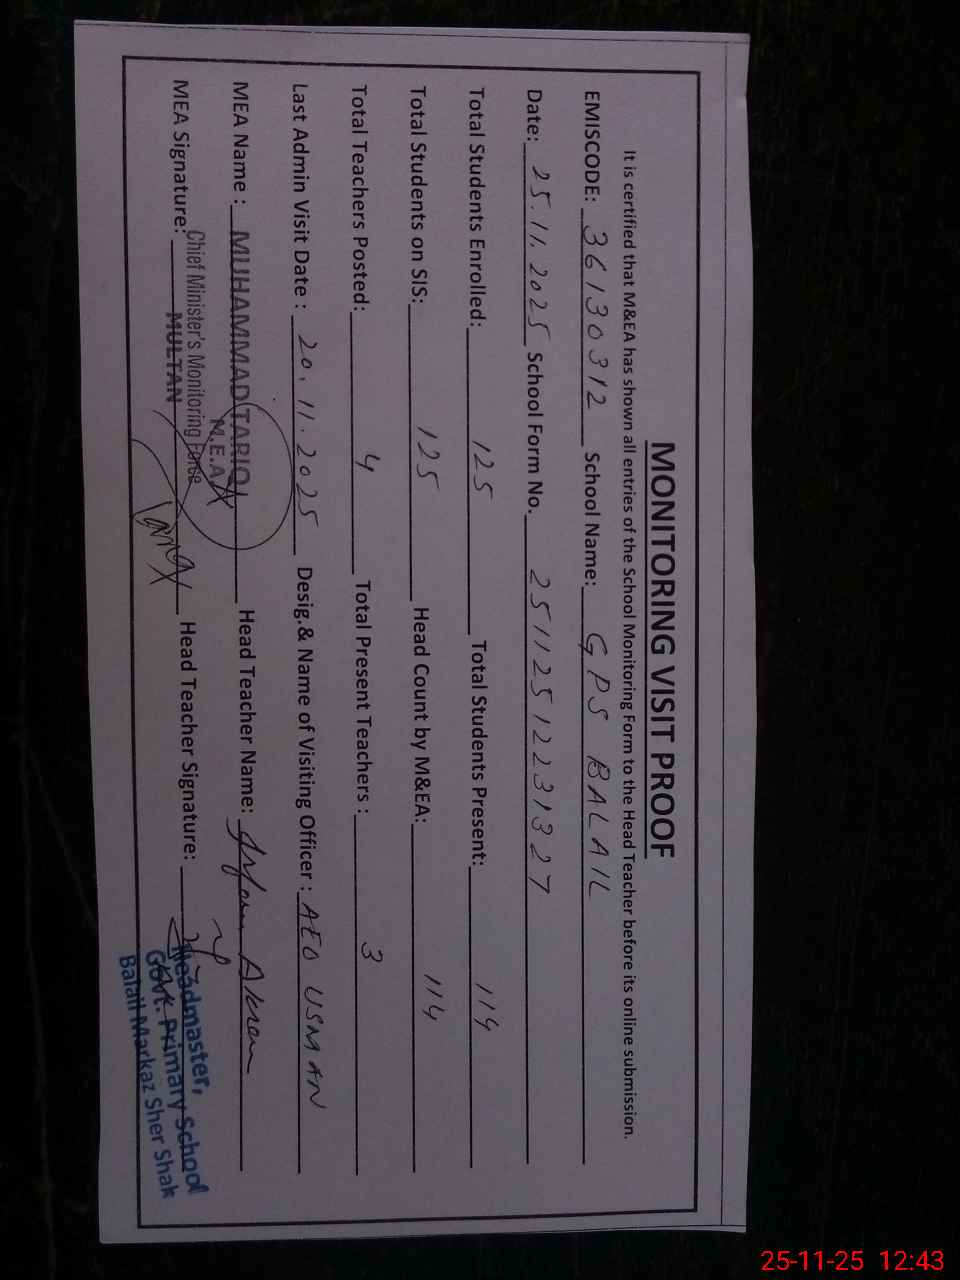 MONITORING VISIT PROOF
It is certified that M&EA has shown all entries of the School Monitoring Form to the Head Teacher before its online submission.
EMISCODE: 36130312 School Name: GPS BALAIL
Date: 25.11.2025 School Form No. 25112512231327
Total Students Enrolled: 125 Total Students Present: 114
Total Students on SIS: 125 Head Count by M&EA: 114
Total Teachers Posted: 4 Total Present Teachers : 3
Last Admin Visit Date : 20.11.2025 Desig.& Name of Visiting Officer : AEO USMAN
MEA Name : MUHAMMAD TARIQ Head Teacher Name: Akram
M.E.A
Chief Minister's Monitoring Force
MEA Signature: MULTAN Head Teacher Signature:
Headmaster,
Govt. Primary School
Balail Markaz Sher Shah
25-11-25 12:43